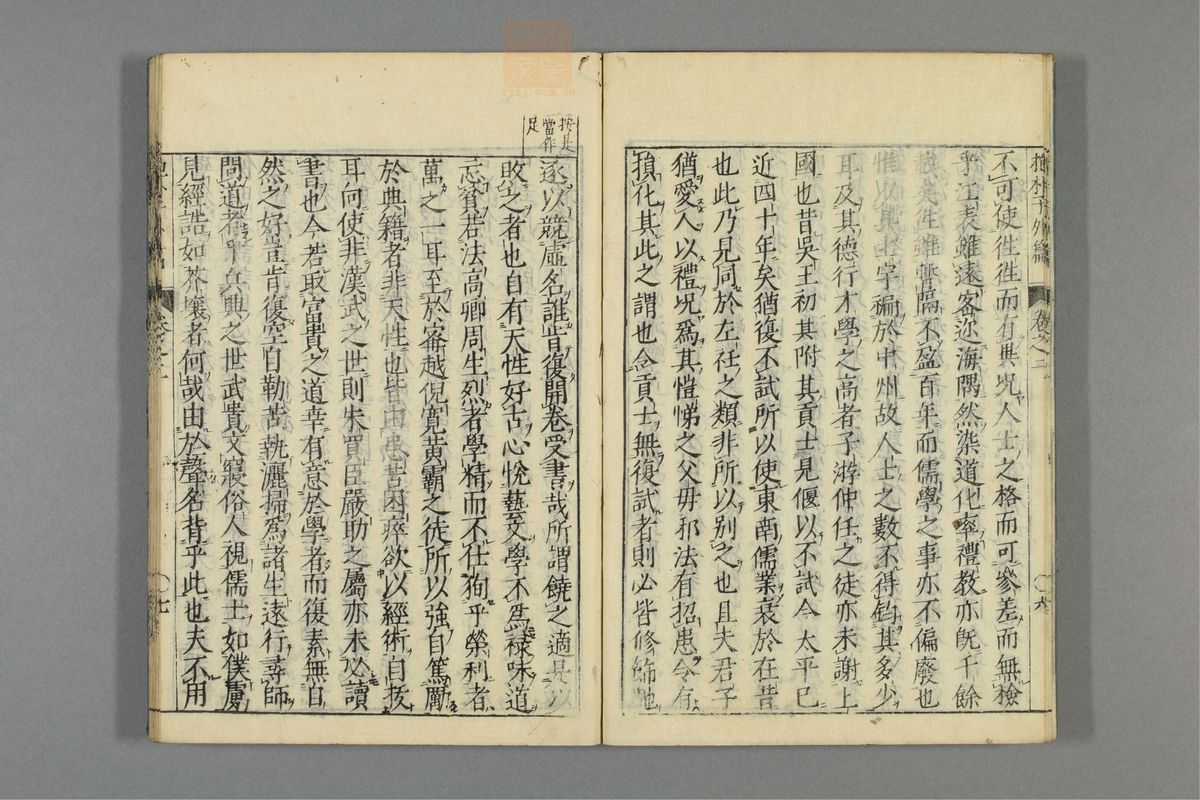 抱朴子外篇 卷之二 〇六
不可使徃徃而有其况人士之格而可參差而無檢
乎江表雖遠密邇海隅然染道化率禮教亦既千餘
載矣徃雖暫隔不盈百年而儒學之事亦不偏廢也
惟以其土宇褊於中州故人士之數不得鈞其多少
耳及其德行才學之高者子游仲任之徒亦未謝上
國也昔吳王初其附其貢士見偃以不試今太平已
近四十年矣猶復不試所以使東南儒業衰於在昔
也此乃見同於左衽之類非所以别之也且夫君子
猶愛人以禮况爲其愷悌之父母邪法有招患令有
損化其此之謂也今貢士無復試者則必皆修飾馳
按是
當作
足
逐以競虛名誰肯復開卷受書哉所謂饒之適是以
敗之者也自有天性好古心悅藝文學不爲祿味道
忘貧若法高卿周生烈者學精而不仕狥乎榮利者
萬之一耳至於甯越倪寬黃霸之徒所以強自篤厲
於典籍者非天性也皆由患苦困瘁欲以經術自拔
耳向使非漢武之世則朱買臣嚴助之屬亦未必讀
書也今若取富貴之道幸有意於學者而復素無自
然之好豈肯復空自勤苦執灑掃爲諸生遠行尋師
問道者乎兵興之世武貴文寢俗人視儒士如僕虜
見經誥如芥壤者何哉由於聲名背乎此也夫不用
〇七